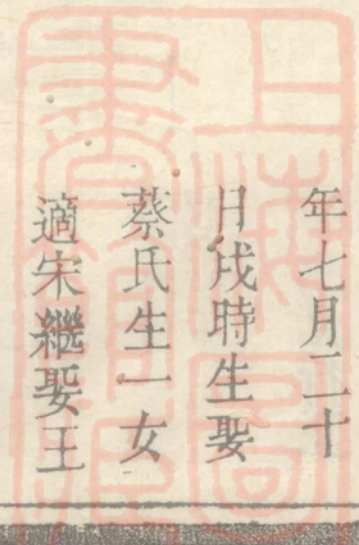 年七月二十
日戌時生娶
蔡氏生一女
適宋繼娶王